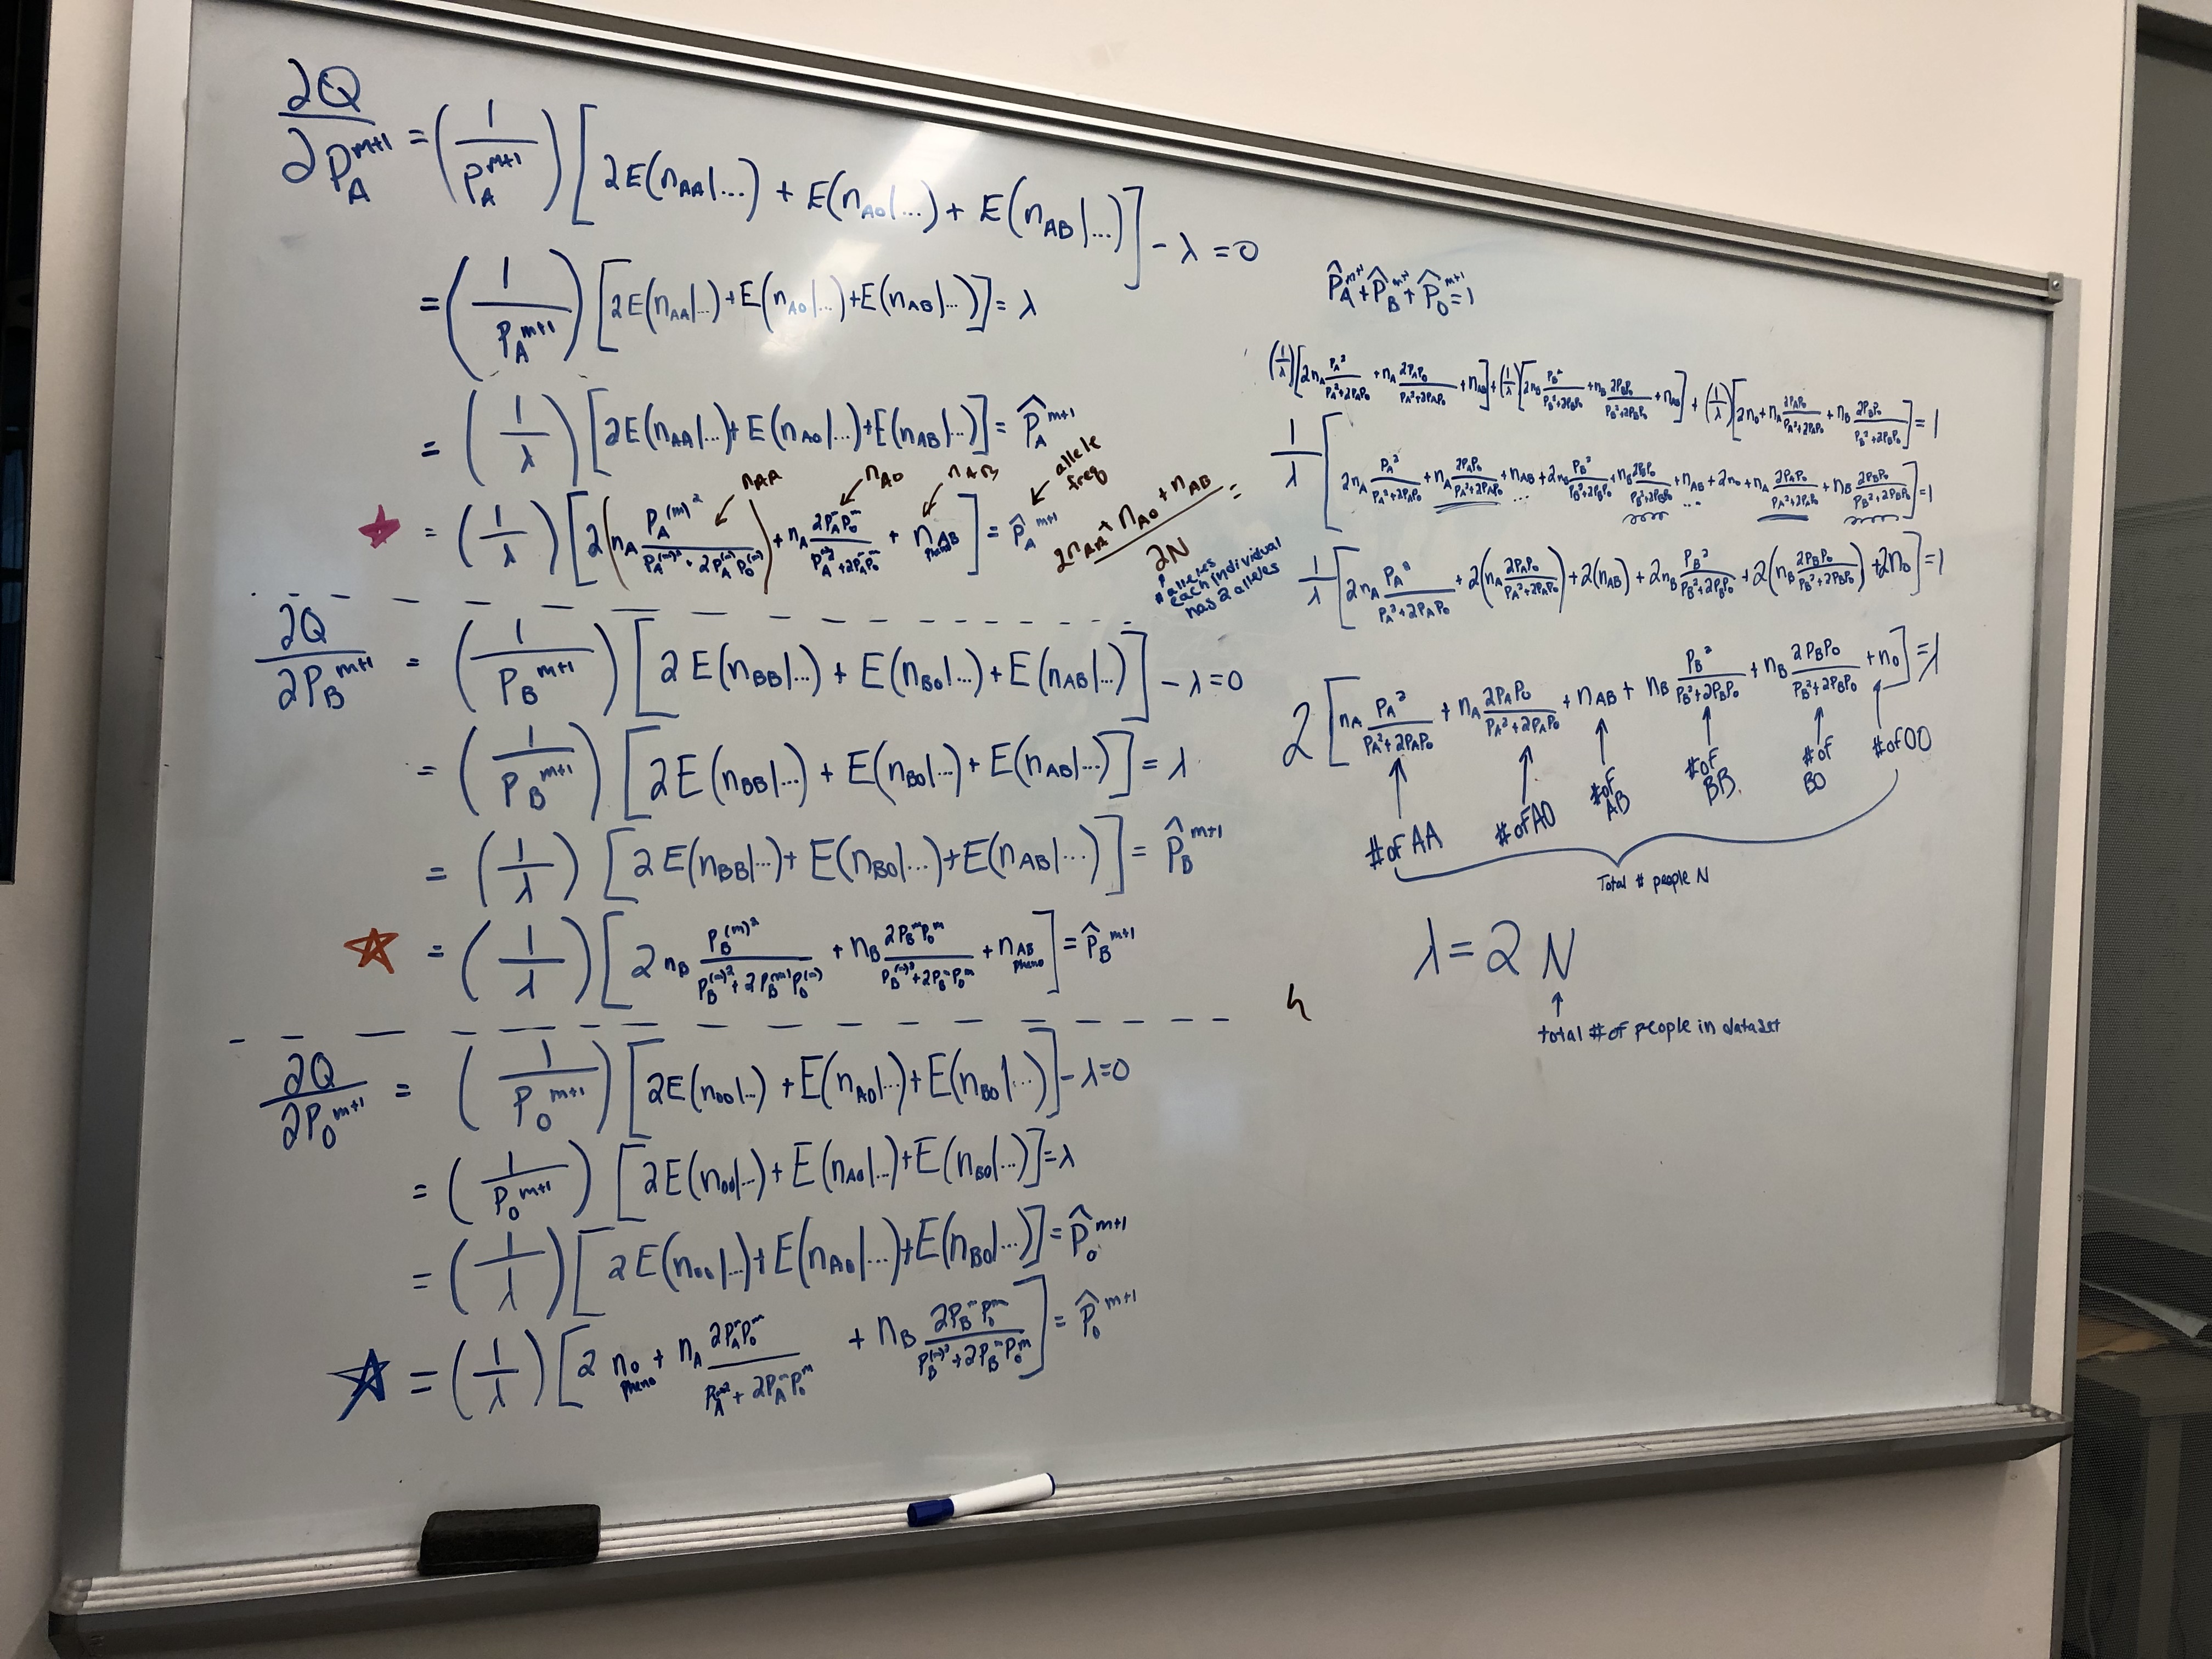 ∂Q/∂P_A^{m+1} = (1/P_A^{m+1}) [2E(n_AA|...) + E(n_AO|...) + E(n_AB|...)] - λ = 0
= (1/P_A^{m+1}) [2E(n_AA|...) + E(n_AO|...) + E(n_AB|...)] = λ
= (1/λ) [2E(n_AA|...) + E(n_AO|...) + E(n_AB|...)] = P̂_A^{m+1}
n_AA n_AO n_AB allele freq
= (1/λ) [2(n_A P_A^{(m)2}/(P_A^{(m)2} + 2P_A^{(m)}P_O^{(m)})) + n_A 2P_A^m P_O^m/(P_A^{(m)2} + 2P_A^m P_O^m) + n_AB pheno] = P̂_A^{m+1}
(2n_AA + n_AO + n_AB)/2N =
# alleles
each individual
has 2 alleles
∂Q/∂P_B^{m+1} = (1/P_B^{m+1}) [2E(n_BB|...) + E(n_BO|...) + E(n_AB|...)] - λ = 0
= (1/P_B^{m+1}) [2E(n_BB|...) + E(n_BO|...) + E(n_AB|...)] = λ
= (1/λ) [2E(n_BB|...) + E(n_BO|...) + E(n_AB|...)] = P̂_B^{m+1}
= (1/λ) [2n_B P_B^{(m)2}/(P_B^{(m)2} + 2P_B^{(m)}P_O^{(m)}) + n_B 2P_B^m P_O^m/(P_B^{(m)2} + 2P_B^m P_O^m) + n_AB pheno] = P̂_B^{m+1}
∂Q/∂P_O^{m+1} = (1/P_O^{m+1}) [2E(n_OO|...) + E(n_AO|...) + E(n_BO|...)] - λ = 0
= (1/P_O^{m+1}) [2E(n_OO|...) + E(n_AO|...) + E(n_BO|...)] = λ
= (1/λ) [2E(n_OO|...) + E(n_AO|...) + E(n_BO|...)] = P̂_O^{m+1}
= (1/λ) [2n_O pheno + n_A 2P_A^m P_O^m/(P_A^{m2} + 2P_A^m P_O^m) + n_B 2P_B^m P_O^m/(P_B^{(m)2} + 2P_B^m P_O^m)] = P̂_O^{m+1}
P̂_A^{m+1} + P̂_B^{m+1} + P̂_O^{m+1} = 1
(1/λ)[2n_A P_A²/(P_A²+2P_AP_O) + n_A 2P_AP_O/(P_A²+2P_AP_O) + n_AB] + (1/λ)[2n_B P_B²/(P_B²+2P_BP_O) + n_B 2P_BP_O/(P_B²+2P_BP_O) + n_AB] + (1/λ)[2n_O + n_A 2P_AP_O/(P_A²+2P_AP_O) + n_B 2P_BP_O/(P_B²+2P_BP_O)] = 1
1/λ [2n_A P_A²/(P_A²+2P_AP_O) + n_A 2P_AP_O/(P_A²+2P_AP_O) + n_AB + 2n_B P_B²/(P_B²+2P_BP_O) + n_B 2P_BP_O/(P_B²+2P_BP_O) + n_AB + 2n_O + n_A 2P_AP_O/(P_A²+2P_AP_O) + n_B 2P_BP_O/(P_B²+2P_BP_O)] = 1
1/λ [2n_A P_A²/(P_A²+2P_AP_O) + 2(n_A 2P_AP_O/(P_A²+2P_AP_O)) + 2(n_AB) + 2n_B P_B²/(P_B²+2P_BP_O) + 2(n_B 2P_BP_O/(P_B²+2P_BP_O)) + 2n_O] = 1
2 [n_A P_A²/(P_A²+2P_AP_O) + n_A 2P_AP_O/(P_A²+2P_AP_O) + n_AB + n_B P_B²/(P_B²+2P_BP_O) + n_B 2P_BP_O/(P_B²+2P_BP_O) + n_O] = λ
# of AA # of AO # of AB # of BB # of BO # of OO
Total # people N
λ = 2N
total # of people in dataset